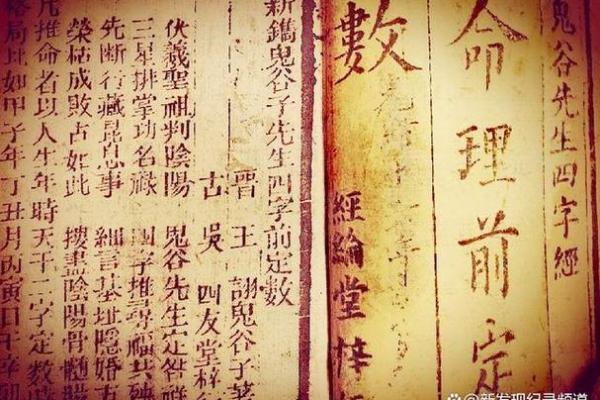 鬼谷先生四字經
命理前定
數
經綸堂梓
新鐫鬼谷子先生四字前定數
晉 王 詡鬼谷子著
古 吳 四友堂梓行
伏羲聖祖判陰陽 鬼谷先生定咎祥
三星排掌功名祿 四字推尋福共殃
先斷行藏 息事 細言基址隱婚
榮枯成敗占如此 搜盡陰陽骨髓
凡推命者以人生年時天干二字定數
格局比如甲子年丁丑月丙寅日
@新发现纪录频道